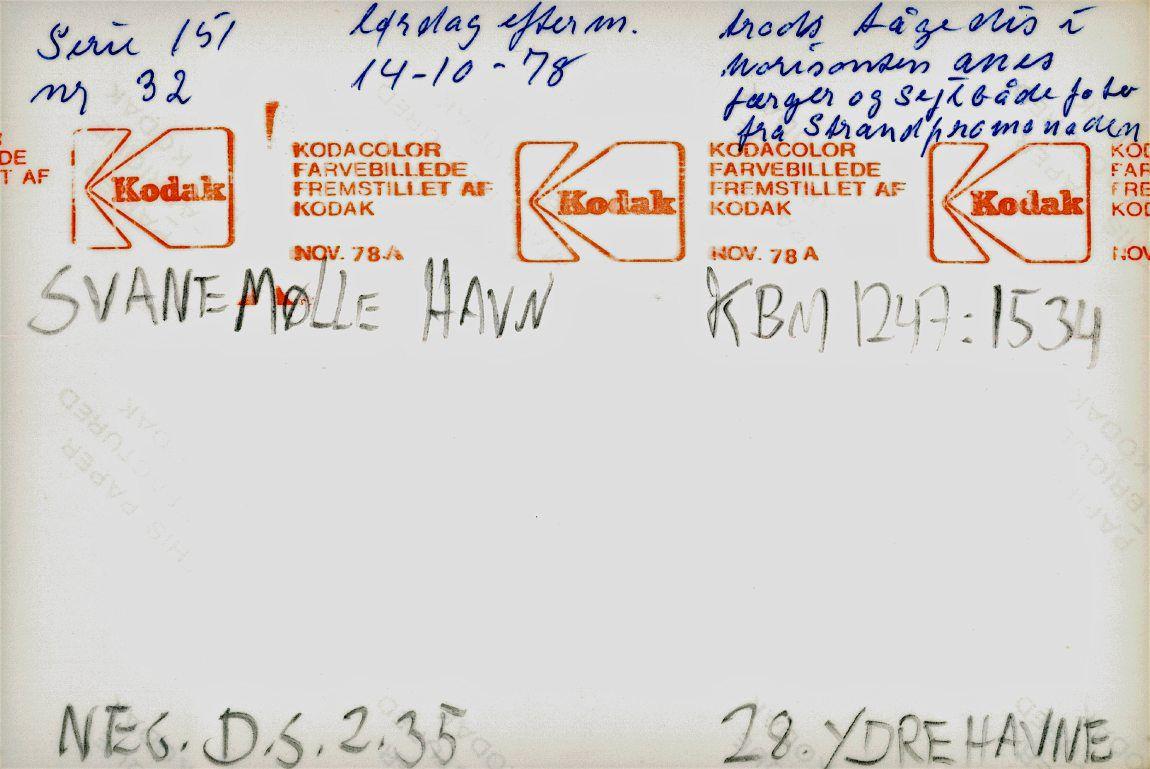 Serie 151
nr 32
lørdag efterm.
14-10-78
trods tågedis i
horisonten anes
færger og sejlbåde foto
fra Strandpromenaden
DE
T AF
Kodak
KODACOLOR
FARVEBILLEDE
FREMSTILLET AF
KODAK
NOV. 78 A
Kodak
KODACOLOR
FARVEBILLEDE
FREMSTILLET AF
KODAK
NOV. 78 A
Kodak
KOD
FAR
FRE
KOD
NOV
SVANEMØLLE HAVN
KBM 1247:1534
NEG. D.S. 2.35
28. YDRE HAVNE